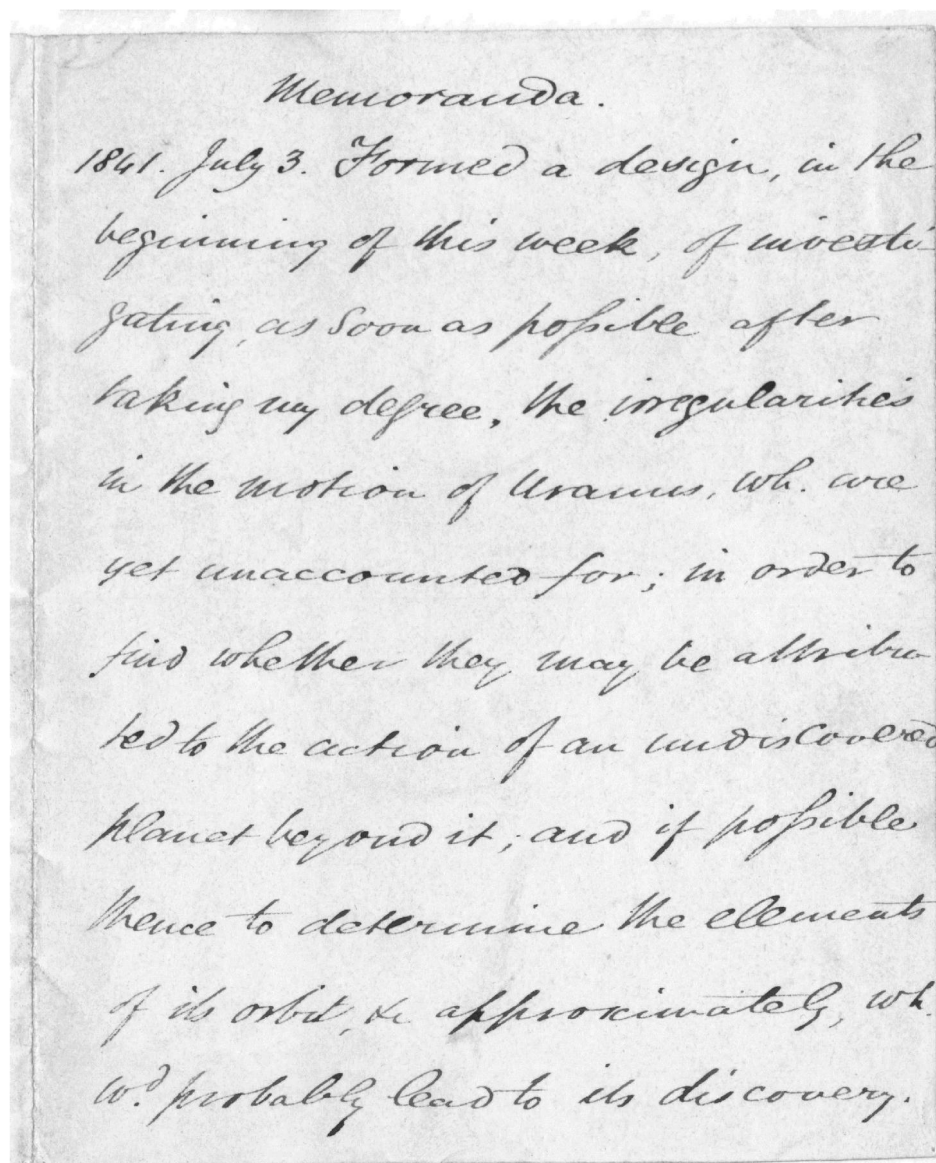 Memoranda.
1841. July 3. Formed a design, in the
beginning of this week, of investi-
gating, as soon as poſsible after
taking my degree, the irregularities
in the motion of Uranus, wh. are
yet unaccounted for; in order to
find whether they may be attribu-
ted to the action of an undiscovered
planet beyond it; and if poſsible
thence to determine the elements
of its orbit, &c approximately, wh.
wd. probably lead to its discovery.